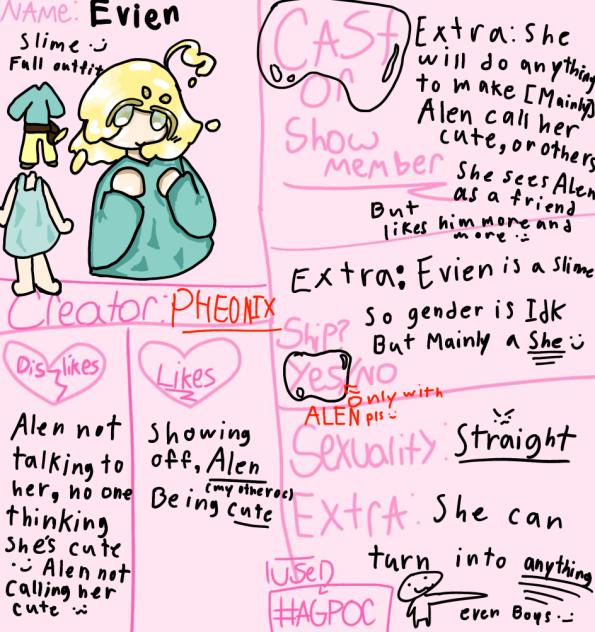 NAME: Evien
Slime :)
Fall outfit
CASt
or
Show
member
Extra: She
will do anything
to make [Mainly]
Alen call her
cute, or others
She sees Alen
as a friend
But
likes him more and
more :)
Creator: PHEONIX
Extra: Evien is a Slime
So gender is Idk
But Mainly a She :)
Ship?
Yes/NO
Only with
ALEN pls :)
Dislikes
Alen not
talking to
her, no one
thinking
She's cute
:) Alen not
Calling her
cute :)
Likes
Showing
off, Alen
(my other oc)
Being cute
Sexuality: Straight
ExtrA: She can
turn into anything
even Boys :)
IUSeD
#AGPOC